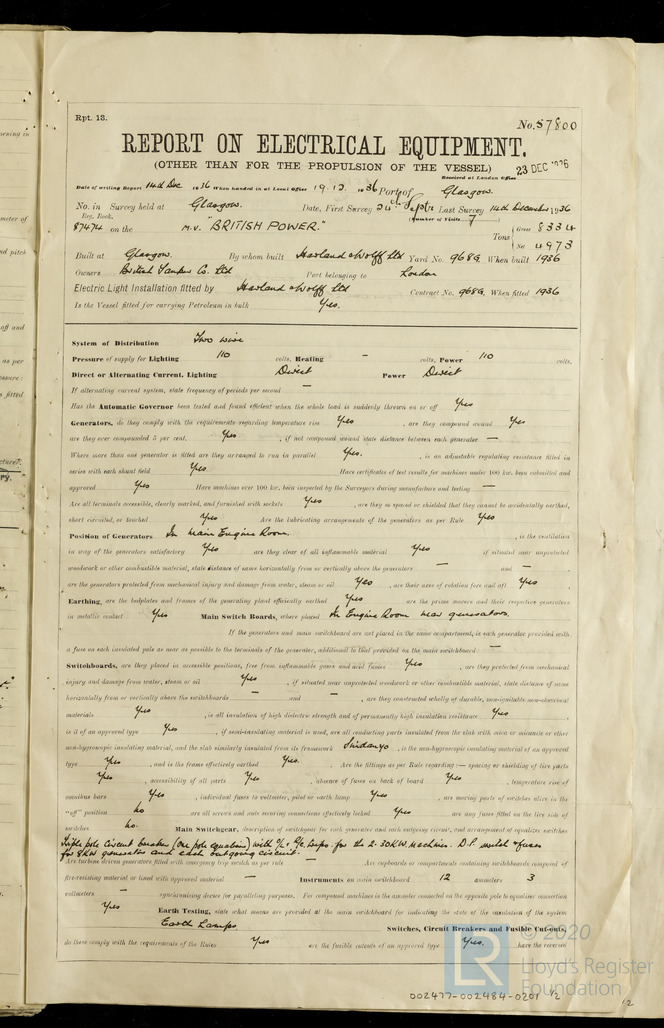 Rpt. 13.
No. 57800
REPORT ON ELECTRICAL EQUIPMENT.
(OTHER THAN FOR THE PROPULSION OF THE VESSEL)
23 DEC 1936
Received at London Office
Date of writing Report 14th Dec 1936 When handed in at Local Office 19.12.1936 Port of Glasgow.
No. in Survey held at Glasgow. Date, First Survey 24th Sept Last Survey 14th December 1936
Reg. Book. (Number of Visits 7
87474 on the M.V. "BRITISH POWER." Tons { Gross 8334
Net 4973
Built at Glasgow. By whom built Harland & Wolff Ltd Yard No. 968G. When built 1936
Owners British Tanker Co. Ltd Port belonging to London
Electric Light Installation fitted by Harland & Wolff Ltd Contract No. 968G. When fitted 1936
Is the Vessel fitted for carrying Petroleum in bulk Yes.
System of Distribution Two wire
Pressure of supply for Lighting 110 volts, Heating - volts, Power 110 volts.
Direct or Alternating Current, Lighting Direct Power Direct
If alternating current system, state frequency of periods per second —
Has the Automatic Governor been tested and found efficient when the whole load is suddenly thrown on or off Yes
Generators, do they comply with the requirements regarding temperature rise Yes, are they compound wound Yes
are they over compounded 5 per cent. Yes, if not compound wound state distance between each generator —
Where more than one generator is fitted are they arranged to run in parallel Yes., is an adjustable regulating resistance fitted in
series with each shunt field Yes. Have certificates of test results for machines under 100 kw. been submitted and
approved Yes Have machines over 100 kw. been inspected by the Surveyors during manufacture and testing —
Are all terminals accessible, clearly marked, and furnished with sockets Yes, are they so spaced or shielded that they cannot be accidentally earthed,
short circuited, or touched Yes Are the lubricating arrangements of the generators as per Rule Yes
Position of Generators In Main Engine Room., is the ventilation
in way of the generators satisfactory Yes are they clear of all inflammable material Yes if situated near unprotected
woodwork or other combustible material, state distance of same horizontally from or vertically above the generators — and —,
are the generators protected from mechanical injury and damage from water, steam or oil Yes, are their axes of rotation fore and aft Yes,
Earthing, are the bedplates and frames of the generating plant efficiently earthed Yes are the prime movers and their respective generators
in metallic contact Yes Main Switch Boards, where placed In Engine Room near generators.
If the generators and main switchboard are not placed in the same compartment, is each generator provided with
a fuse on each insulated pole as near as possible to the terminals of the generator, additional to that provided on the main switchboard —
Switchboards, are they placed in accessible positions, free from inflammable gases and acid fumes Yes, are they protected from mechanical
injury and damage from water, steam or oil Yes, if situated near unprotected woodwork or other combustible material, state distance of same
horizontally from or vertically above the switchboards — and —, are they constructed wholly of durable, non-ignitable non-absorbent
materials Yes, is all insulation of high dielectric strength and of permanently high insulation resistance Yes,
is it of an approved type Yes, if semi-insulating material is used, are all conducting parts insulated from the slab with mica or micanite or other
non-hygroscopic insulating material, and the slab similarly insulated from its framework Sindanyo, is the non-hygroscopic insulating material of an approved
type Yes, and is the frame effectively earthed Yes. Are the fittings as per Rule regarding:— spacing or shielding of live parts
Yes, accessibility of all parts Yes, absence of fuses on back of board Yes, temperature rise of
omnibus bars Yes, individual fuses to voltmeter, pilot or earth lamp Yes, are moving parts of switches alive in the
"off" position No are all screws and nuts securing connections effectively locked Yes are any fuses fitted on the live side of
switches No. Main Switchgear, description of switchgear for each generator and each outgoing circuit, and arrangement of equalizer switches
Triple pole circuit breaker (one pole equalising) with for the 2-30KW machines. D.P. switch & fuses
for 8KW generator and each outgoing circuit.
Are turbine driven generators fitted with emergency trip switch as per rule — Are cupboards or compartments containing switchboards composed of
fire-resisting material or lined with approved material — Instruments on main switchboard 12 ammeters 3
voltmeters — synchronising device for paralleling purposes. For compound machines is the ammeter connected on the opposite pole to equaliser connection
Yes Earth Testing, state what means are provided at the main switchboard for indicating the state of the insulation of the system
Earth Lamps Switches, Circuit Breakers and Fusible Cut-outs,
do these comply with the requirements of the Rules Yes are the fusible cutouts of an approved type Yes. have the reversed
© 2020
LR
Lloyd's Register
Foundation
002477-002484-0201 1/2